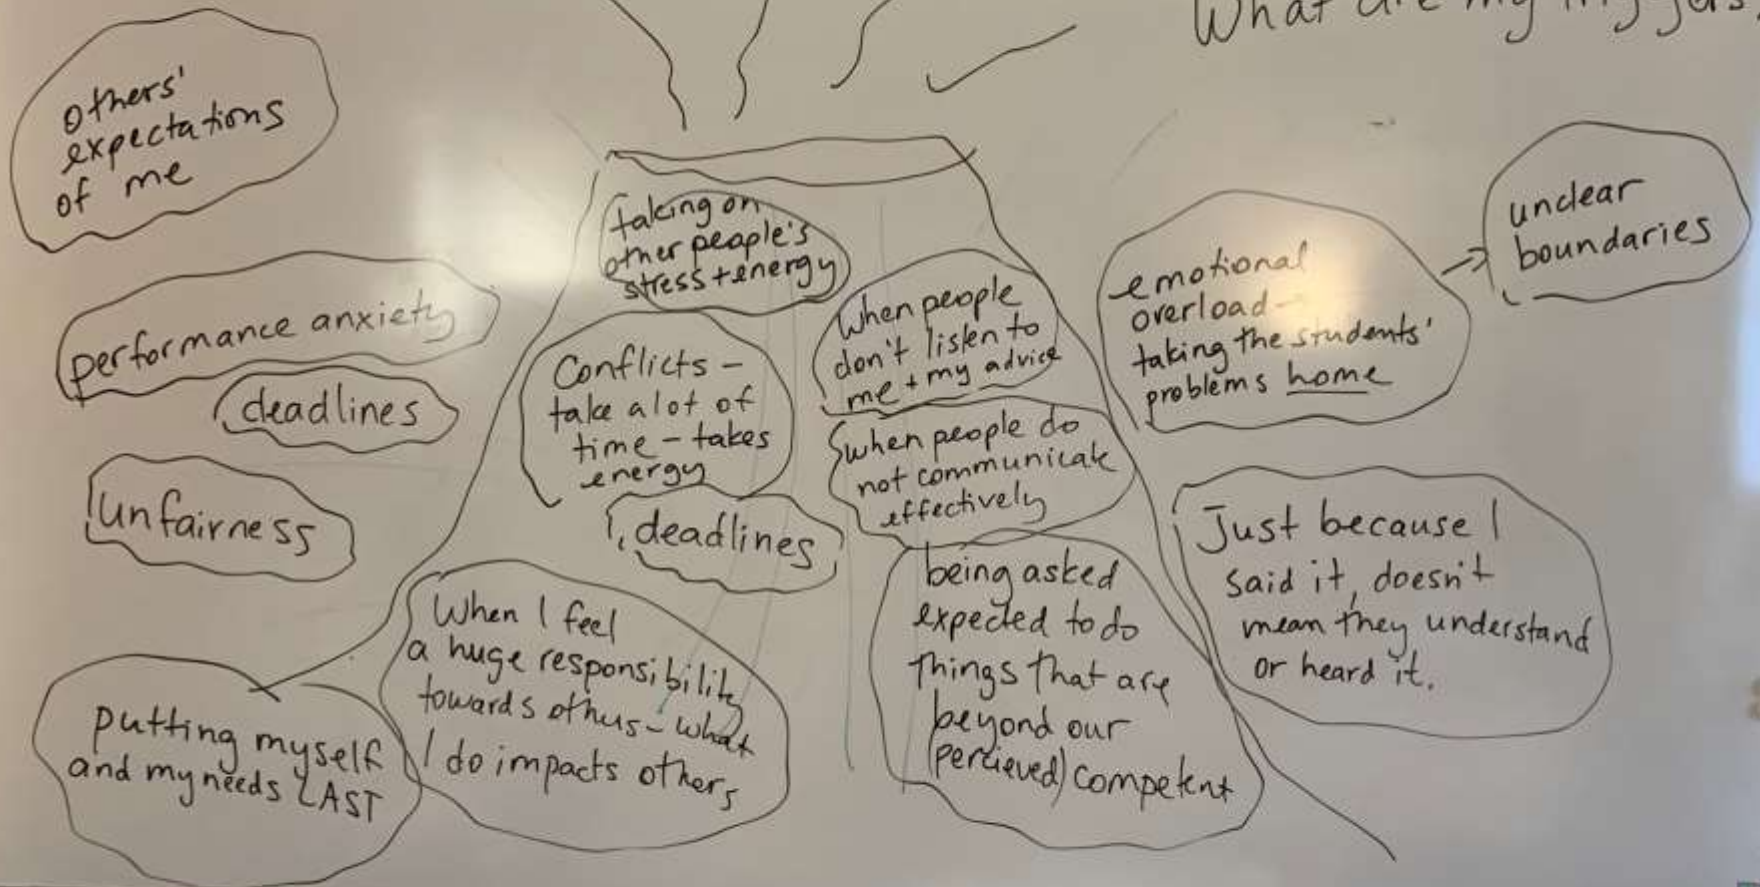 What are my triggers
others'
expectations
of me
performance anxiety
deadlines
Unfairness
putting myself
and my needs LAST
taking on
other people's
stress + energy
Conflicts -
take a lot of
time - takes
energy
deadlines
When I feel
a huge responsibility
towards others - what
I do impacts others
When people
don't listen to
me + my advice
when people do
not communicate
effectively
being asked
expected to do
things that are
beyond our
(percieved) competent
emotional
overload -
taking the students'
problems home
unclear
boundaries
Just because I
said it, doesn't
mean they understand
or heard it.